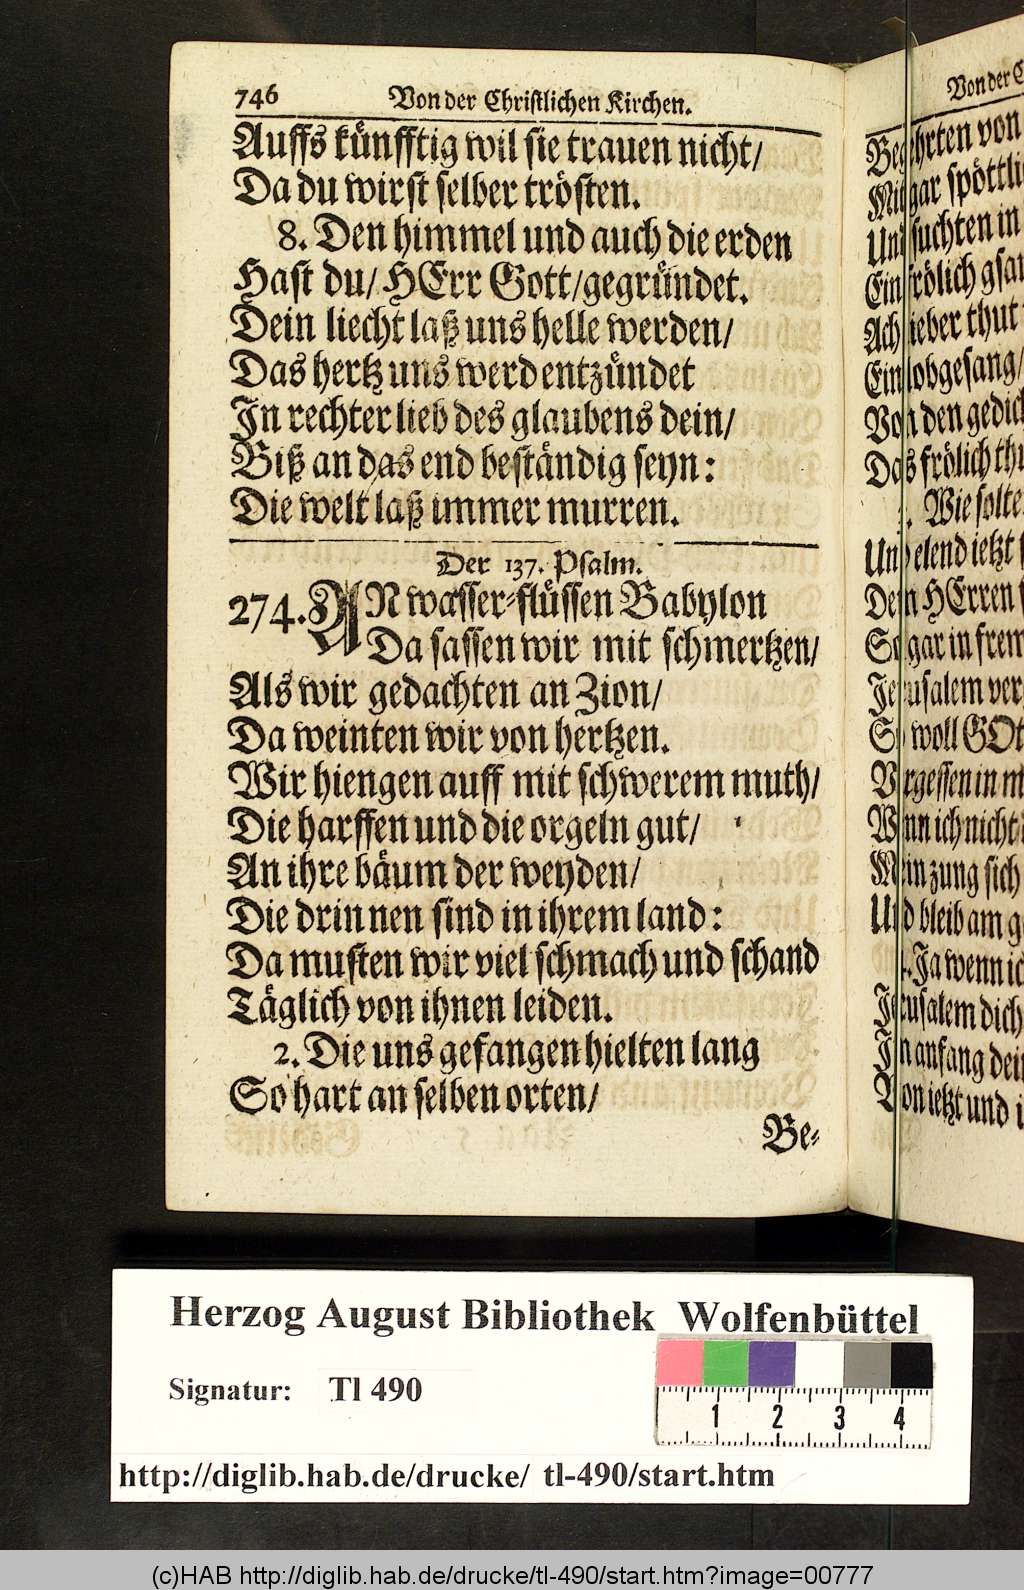 746 Von der Christlichen Kirchen.
Auffs künfftig wil sie trauen nicht/
Da du wirst selber trösten.
8. Den himmel und auch die erden
Hast du/ HErr Gott/gegründet.
Dein liecht laß uns helle werden/
Das hertz uns werd entzündet
In rechter lieb des glaubens dein/
Biß an das end beständig seyn:
Die welt laß immer murren.
Der 137. Psalm.
274. AN wasser-flüssen Babylon
Da sassen wir mit schmertzen/
Als wir gedachten an Zion/
Da weinten wir von hertzen.
Wir hiengen auff mit schwerem muth/
Die harffen und die orgeln gut/
An ihre bäum der weyden/
Die drinnen sind in ihrem land:
Da musten wir viel schmach und schand
Täglich von ihnen leiden.
2. Die uns gefangen hielten lang
So hart an selben orten/
Be-
Von der
Begehrten von
Mit gar
Und suchten in
Ein frölich
Ach lieber thut
Ein lobgesang/
Von den
Das frölich
Wie solte
Und elend ietzt
Dem HErren
So gar in
Jerusalem
So woll
Vergessen in
Wenn ich nicht
Mein zung sich
Und bleib am
Ja wenn
Jerusalem dich
Im anfang
Von ietzt und
Herzog August Bibliothek Wolfenbüttel
Signatur: Tl 490
1 2 3 4
http://diglib.hab.de/drucke/ tl-490/start.htm
(c)HAB http://diglib.hab.de/drucke/tl-490/start.htm?image=00777